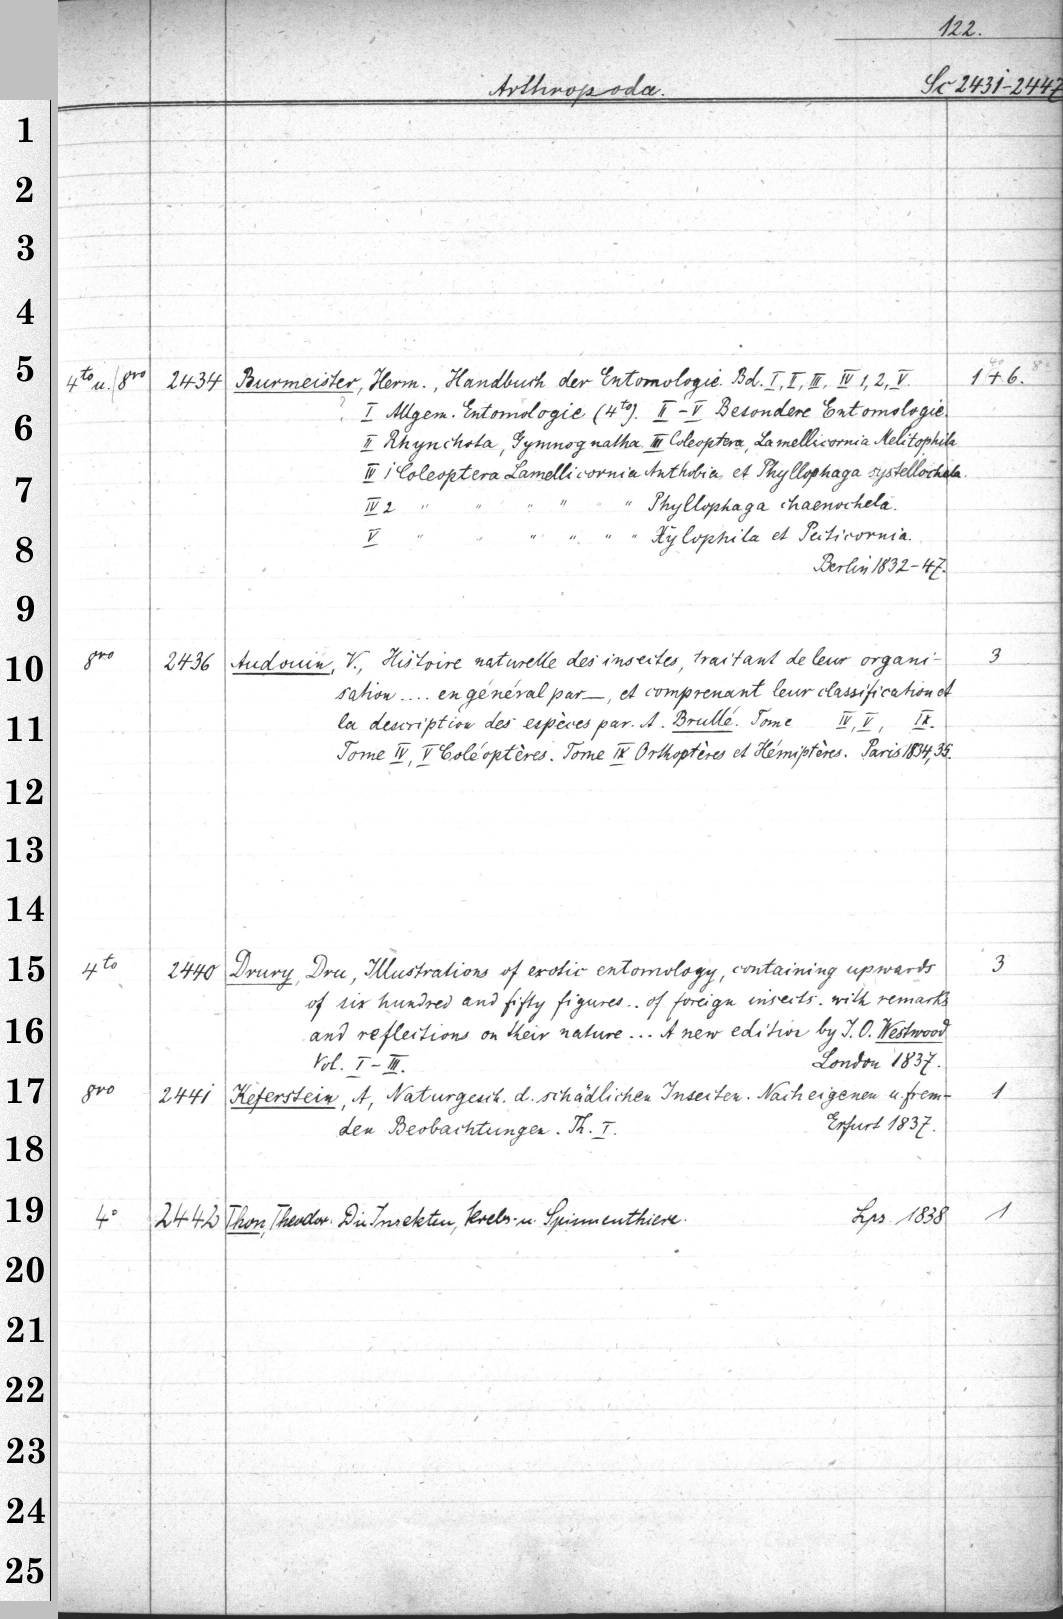 122.
Arthropoda. Sc 2431-2447
1
2
3
4
5
4to u. 8vo 2434 Burmeister, Herm., Handbuch der Entomologie. Bd. I, II, III, IV 1, 2, V. 1+6.
I Allgem. Entomologie (4to). II-V Besondere Entomologie.
6
II Rhynchota, Gymnognatha III Coleoptera, Lamellicornia Melitophila
IV 1 Coleoptera Lamellicornia Anthobia et Phyllophaga systellochela.
7
IV 2 " " " " " Phyllophaga chaenochela.
8
V " " " " " " Xylophila et Pecticornia.
Berlin 1832-47.
9
10
8vo 2436 Audouin, V., Histoire naturelle des insectes, traitant de leur organi- 3
sation .... en général par —, et comprenant leur classification et
11
la description des espèces par. A. Brullé. Tome IV, V, IX.
Tome IV, V Coléoptères. Tome IX Orthoptères et Hémiptères. Paris 1834, 35.
12
13
14
15
4to 2440 Drury, Dru, Illustrations of exotic entomology, containing upwards 3
of six hundred and fifty figures .. of foreign insects. with remarks
16
and reflections on their nature ... A new edition by J. O. Westwood
Vol. I-III. London 1837.
17
8vo 2441 Keferstein, A, Naturgesch. d. schädlichen Insecten. Nach eigenen u. frem- 1
den Beobachtungen. Th. I. Erfurt 1837.
18
19
4° 2442 Thon, Theodor. Die Insekten, Krebs- u. Spinnenthiere. Lps. 1838 1
20
21
22
23
24
25